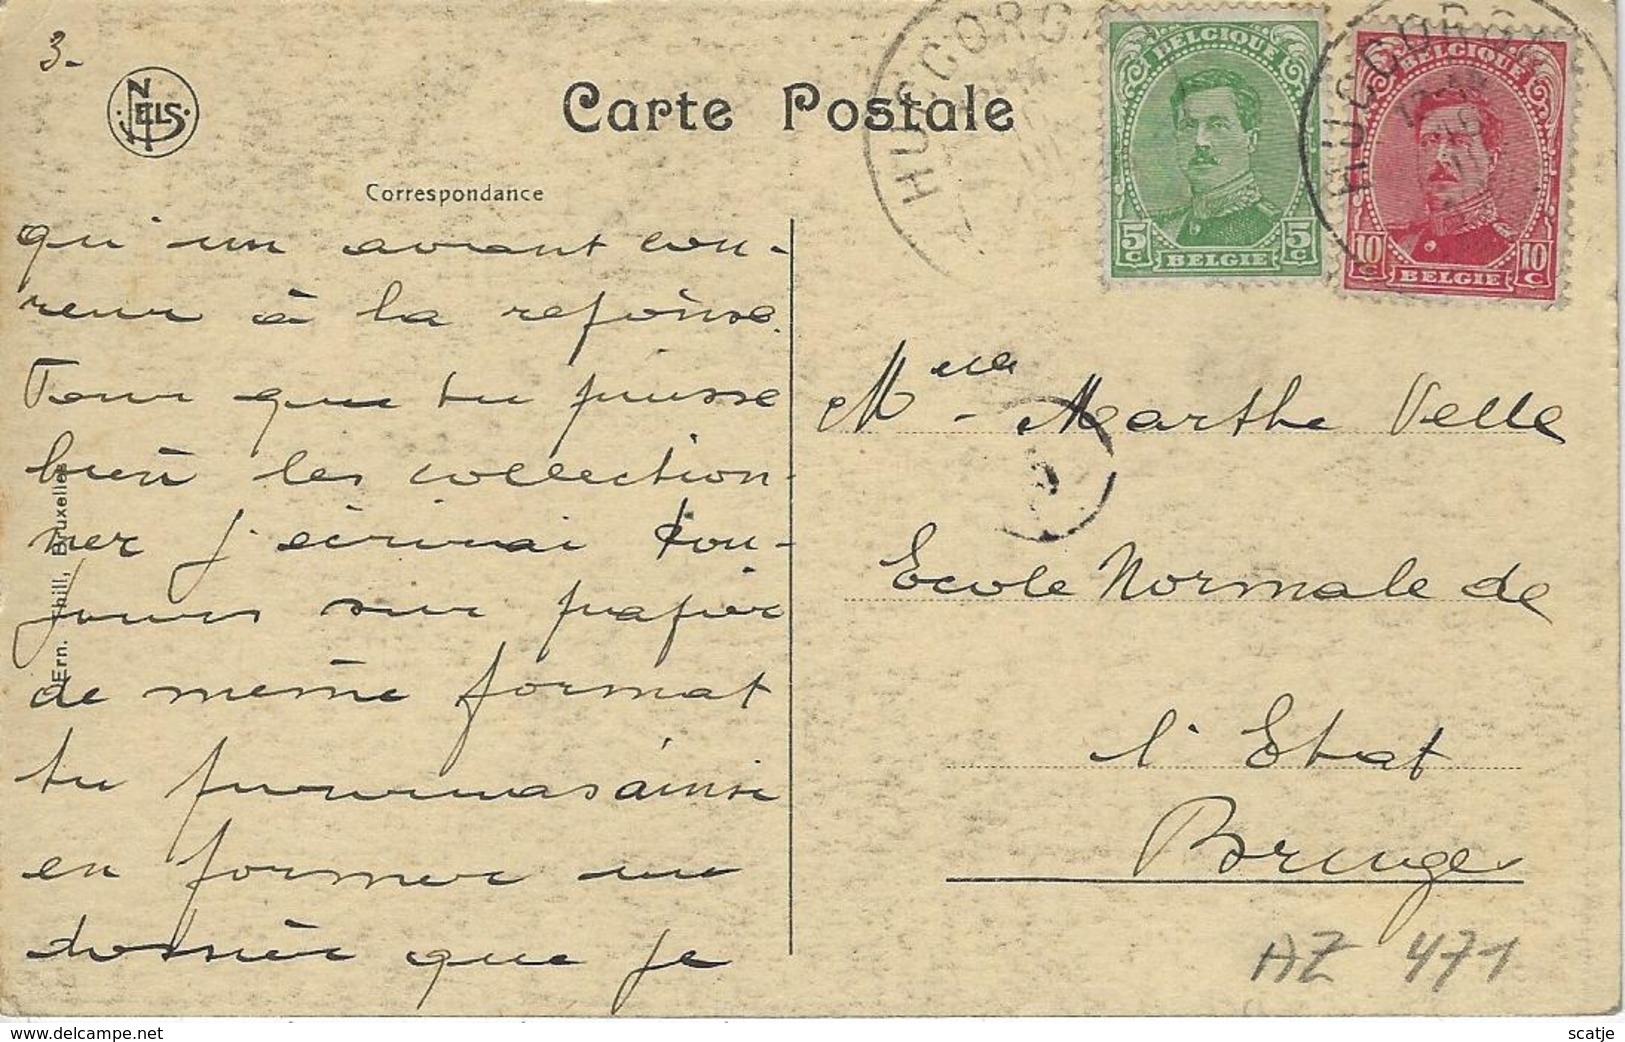 3-
NELS
Carte Postale
Correspondance
HUCCORG
HUCCORG
BELGIQUE
5c 5c
BELGIE
BELGIQUE
10c 10c
BELGIE
qu'un avant cou-
reur à la reponse.
Pour que tu puisse
bien les collection-
ner j'ecrirai tou-
jours sur papier
de même format
tu pourras ainsi
en former un
dossier que je
Ern. Thill, Bruxelles
Melle Marthe Velle
Ecole Normale de
l'Etat
Bruges
AZ 471
www.delcampe.net
scatje